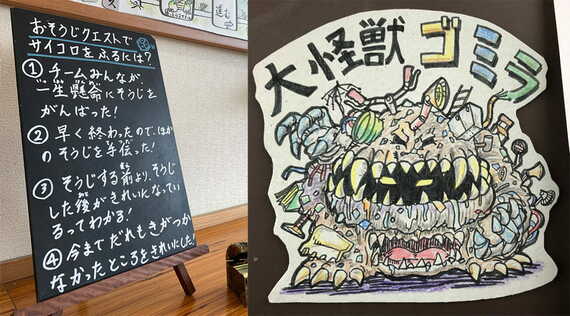 おそうじクエストで
サイコロをふるには?
① チームみんなが、
一生懸命にそうじを
がんばった!
② 早く終わったので、ほか
のそうじを手伝った!
③ そうじする前より、そうじ
した後がきれいになってい
るってわかる!
④ 今までだれもきがつか
なかったところをきれいにした!
大怪獣ゴミラ